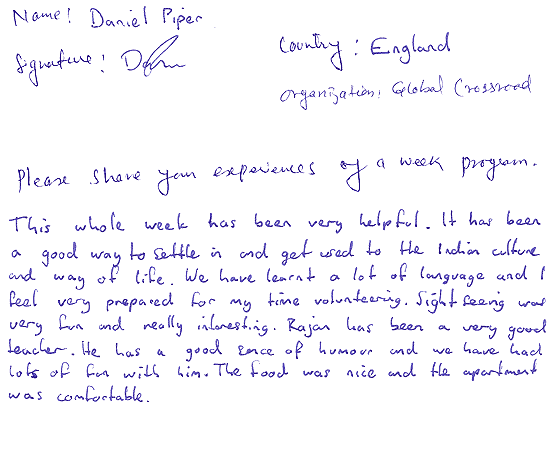 Name: Daniel Piper
Country: England
Signature: Dan
Organization: Global Crossroad
Please share your experiences of a week program.
This whole week has been very helpful. It has been
a good way to settle in and get used to the Indian culture
and way of life. We have learnt a lot of language and I
feel very prepared for my time volunteering. Sight seeing was
very fun and really interesting. Rajan has been a very good
teacher. He has a good sence of humour and we have had
lots of fun with him. The food was nice and the apartment
was comfortable.